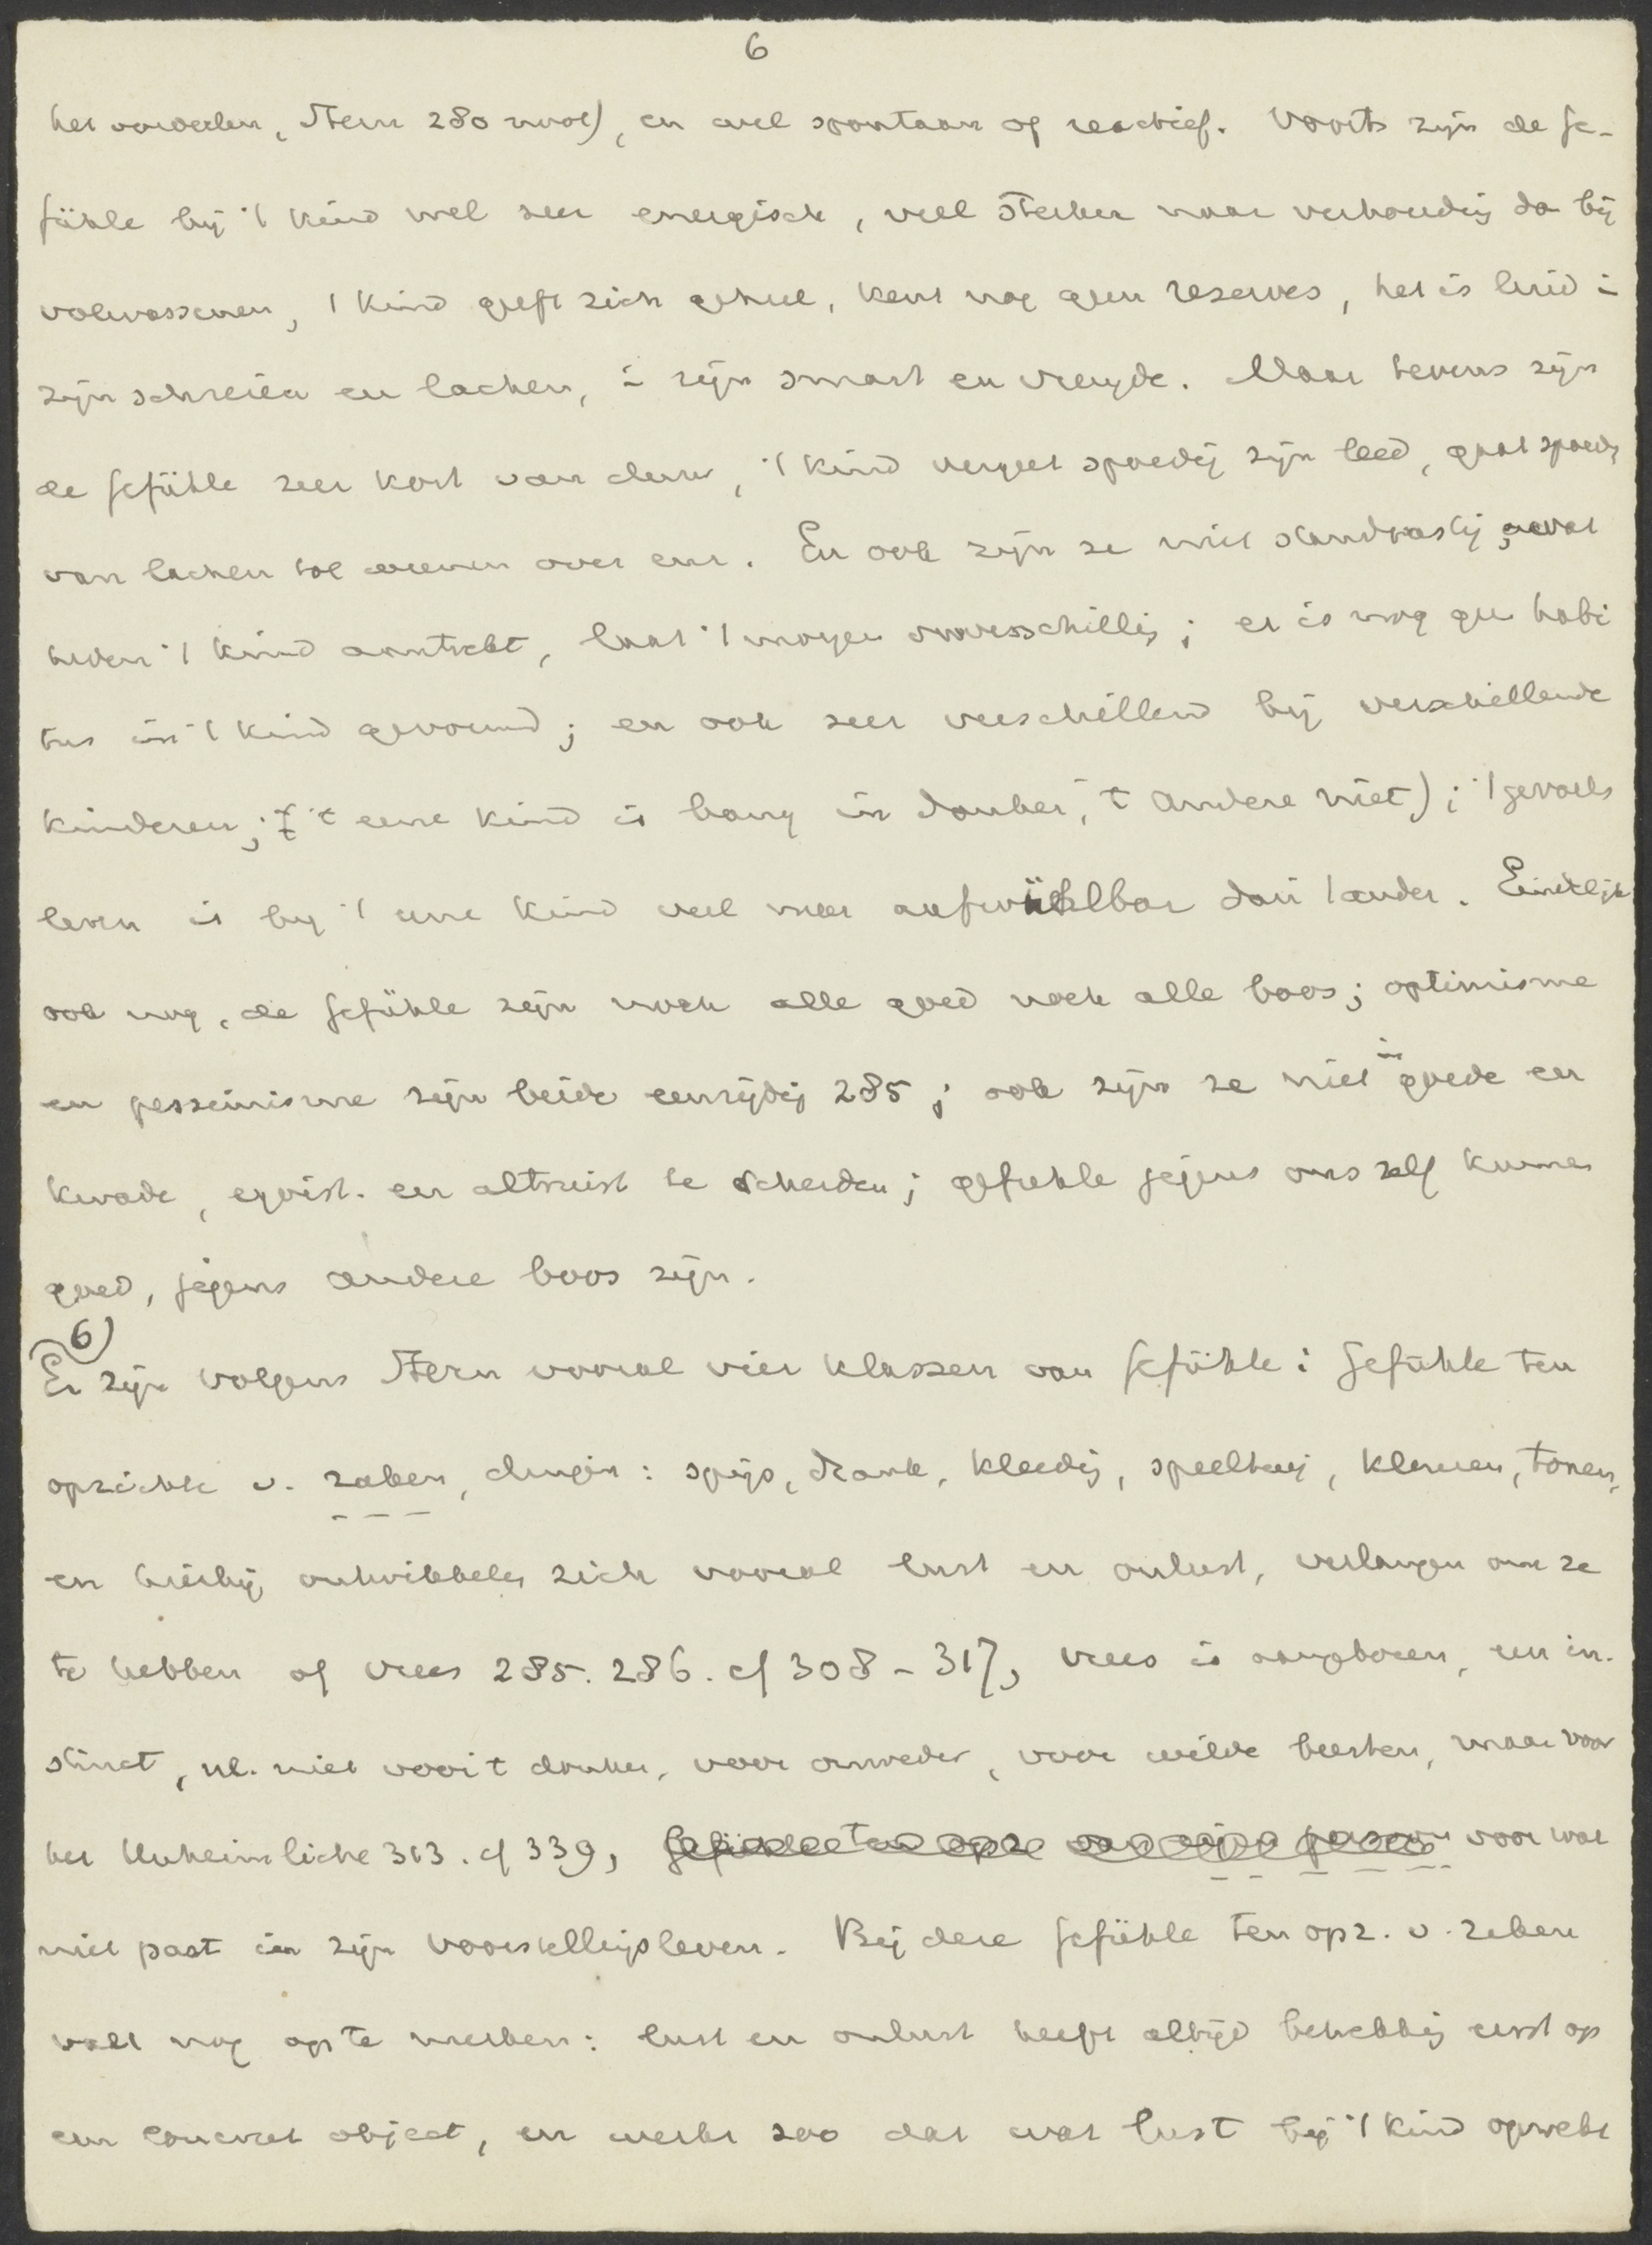 6
het voordeelen, Stern 280 noot), en wel spontaan of reactief. Voorts zijn de Ge-
fühle bij 't kind wel zeer energisch, veel sterker naar verhoudig dan bij
volwassenen, 't kind geeft zich geheel, kent nog geen reserves, het is luid in
zijn schreien en lachen, in zijn smart en vreugde. Maar tevens zijn
de Gefühle zeer kort van duur, 't kind vergeet spoedig zijn leed, gaat spoedig
van lachen tot weenen over enz. En ook zijn ze niet standvastig; wat
heden 't kind aantrekt, laat 't morgen onverschillig; er is nog geen habi
tus in 't kind gevormd; en ook zeer verschillend bij verschillende
kinderen; ('t eene kind is bang in donker, 't andere niet); 't gevoels
leven is bij 't eene kind veel meer aufwühlbar dan 't ander. Eindelijk
ook nog, de Gefühle zijn noch alle goed noch alle boos; optimisme
en pessimisme zijn beide eenzijdig 285; ook zijn ze niet in goede en
kwade, egoist. en altruist te scheiden; gefuehle jegens ons zelf kunnen
goed, jegens andere boos zijn.
6)
Er zijn volgens Stern vooral vier klassen van Gefühle: Gefühle ten
opzichte v. zaken, dingen: spijs, drank, kleedij, speeltuig, kleuren, tonen,
en hierbij ontwikkelen zich vooral lust en onlust, verlangen om ze
te hebben of vrees 285. 286. cf 308-317, vrees is aangeboren, een in-
stinct, nl. niet voor 't donker, voor onweder, voor wilde beesten, maar voor
het Unheimliche 313. cf 339, Gefühle ten opz van eigen persoon voor wat
niet past in zijn voorstellingsleven. Bij deze Gefühle ten opz. v. zaken
valt nog op te merken: lust en onlust heeft altijd betrekkig eerst op
een concreet object, en werkt zoo dat wat lust bij 't kind opwekt